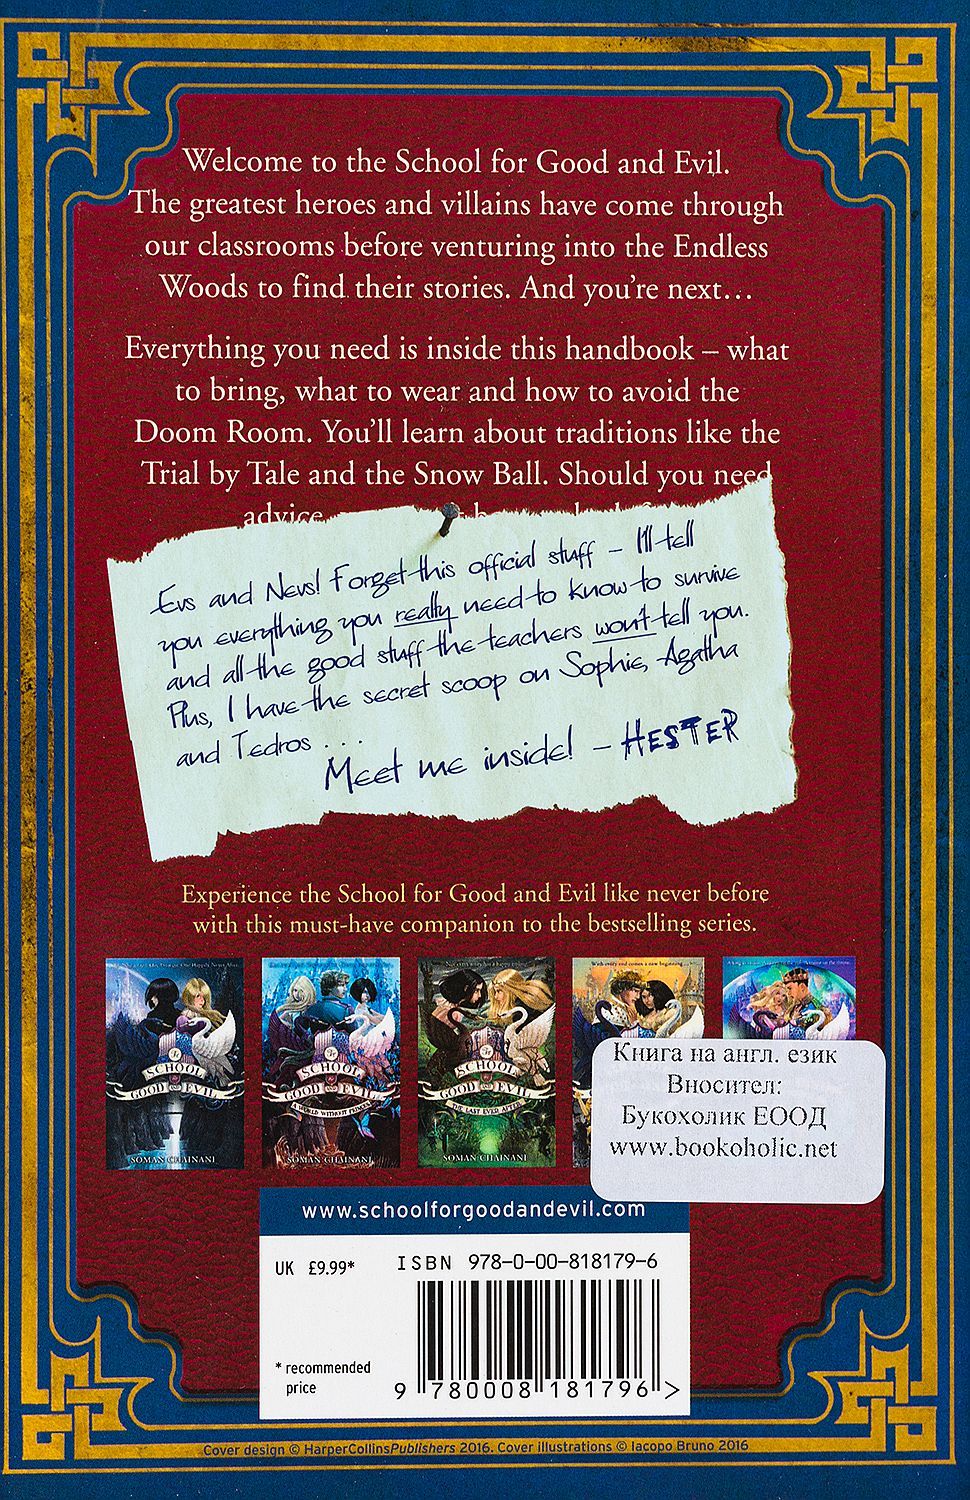 Welcome to the School for Good and Evil.
The greatest heroes and villains have come through
our classrooms before venturing into the Endless
Woods to find their stories. And you're next...
Everything you need is inside this handbook – what
to bring, what to wear and how to avoid the
Doom Room. You'll learn about traditions like the
Trial by Tale and the Snow Ball. Should you need
advice
Evs and Nevs! Forget this official stuff – I'll tell
you everything you really need to know to survive
and all the good stuff the teachers won't tell you.
Plus, I have the secret scoop on Sophie, Agatha
and Tedros . . .
Meet me inside! – HESTER
Experience the School for Good and Evil like never before
with this must-have companion to the bestselling series.
The
SCHOOL
GOOD AND EVIL
SOMAN CHAINANI
The
SCHOOL
GOOD AND EVIL
A WORLD WITHOUT PRINCES
SOMAN CHAINANI
The
SCHOOL
GOOD AND EVIL
THE LAST EVER AFTER
SOMAN CHAINANI
With every end comes a new beginning
Книга на англ. език
Вносител:
Букохолик ЕООД
www.bookoholic.net
www.schoolforgoodandevil.com
UK £9.99*
ISBN 978-0-00-818179-6
* recommended
price
9 780008 181796 >
Cover design © HarperCollinsPublishers 2016. Cover illustrations © Iacopo Bruno 2016